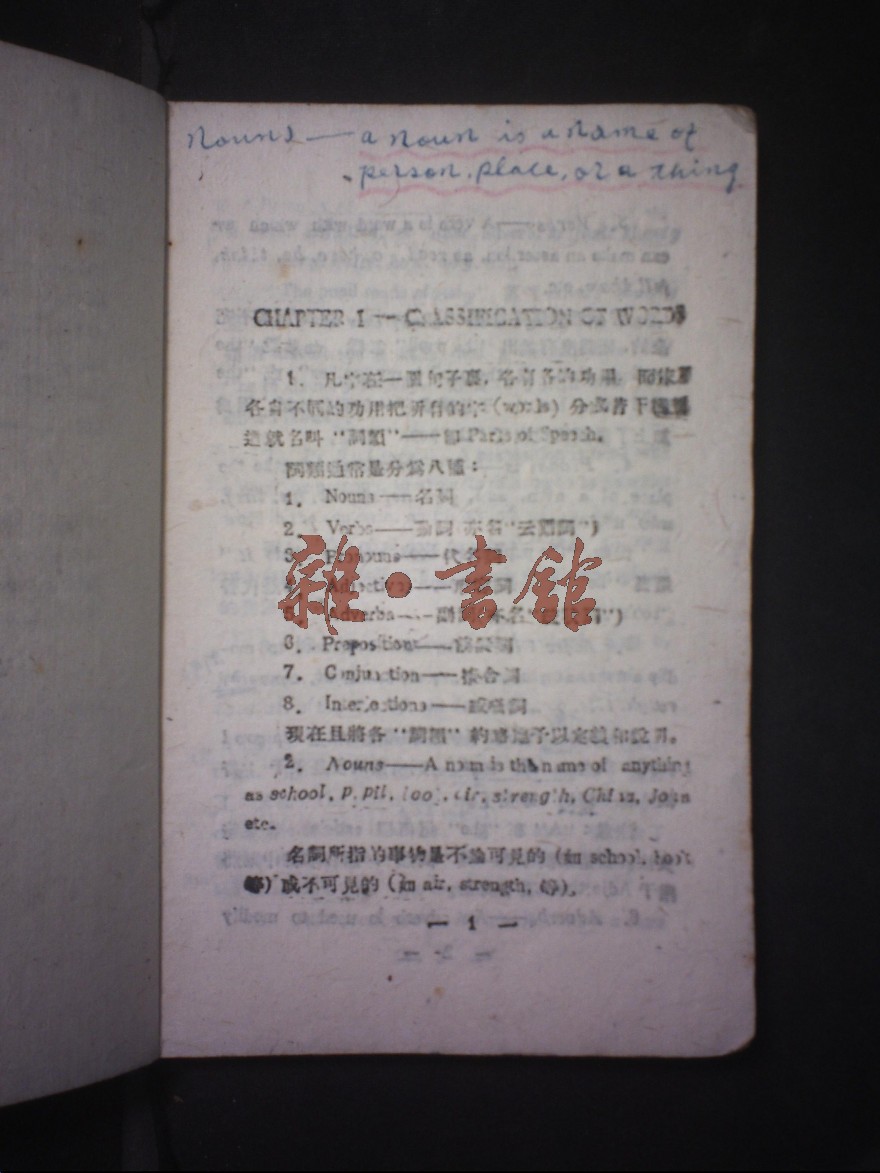 Nouns — a noun is a name of
person, place, or a thing
CHAPTER I — CLASSIFICATION OF WORDS
1. 凡字在一個句子裏，各有各的功用
各有不同的功用把所有的字 (words) 分成若干
這就名叫 "詞類" —— Parts of Speech.
詞類通常是分爲八種：
1. Nouns —— 名詞
2. Verbs —— 動詞 亦名"云謂詞")
3. Pronouns —— 代名詞
4. Adjectives
5. Adverbs —— 亦名
6. Prepositions ——
7. Conjunction ——
8. Interjections —— 感嘆詞
現在且將各 "詞類" 的 予以定義和說明。
2. Nouns —— A noun is the name of anything
as school, pupil, book, air, strength, China, John
etc.
名詞所指的事物是不論可見的 (如 school, book
等) 或不可見的 (如 air, strength, 等).
— 1 —
雜·書館